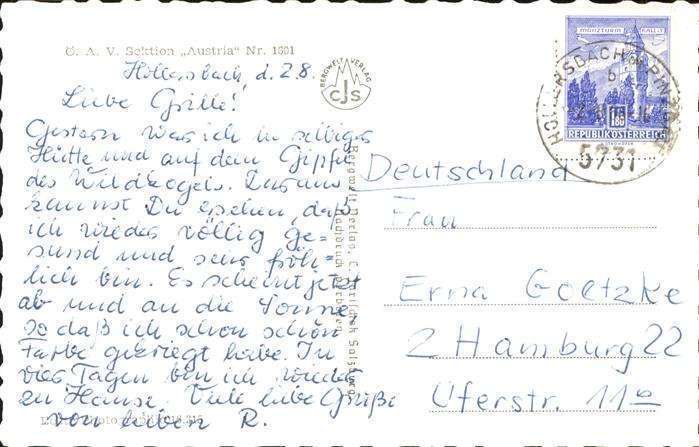 Ö. A. V. Sektion „Austria“ Nr. 1601
Hollersbach d. 2.8.
Liebe Grille!
Gestern war ich in selbiger
Hütte und auf dem Gipfel
des Wildkogels. Daraus
kannst Du ersehen, daß
ich wieder völlig ge-
sund und sehr fröh-
lich bin. Es scheint jetzt
ab und an die Sonne,
so daß ich schon schön
Farbe gekriegt habe. In
vier Tagen bin ich wieder
zu Hause. Viele liebe Grüße
von lieben R.
BERGWELT VERLAG
CJS
MÜNZTURM HALL I. T.
1.80
REPUBLIK ÖSTERREICH
HOLLERSBACH
5731
Deutschland
Frau
Erna Goetzke
2 Hamburg 22
Uferstr. 11b